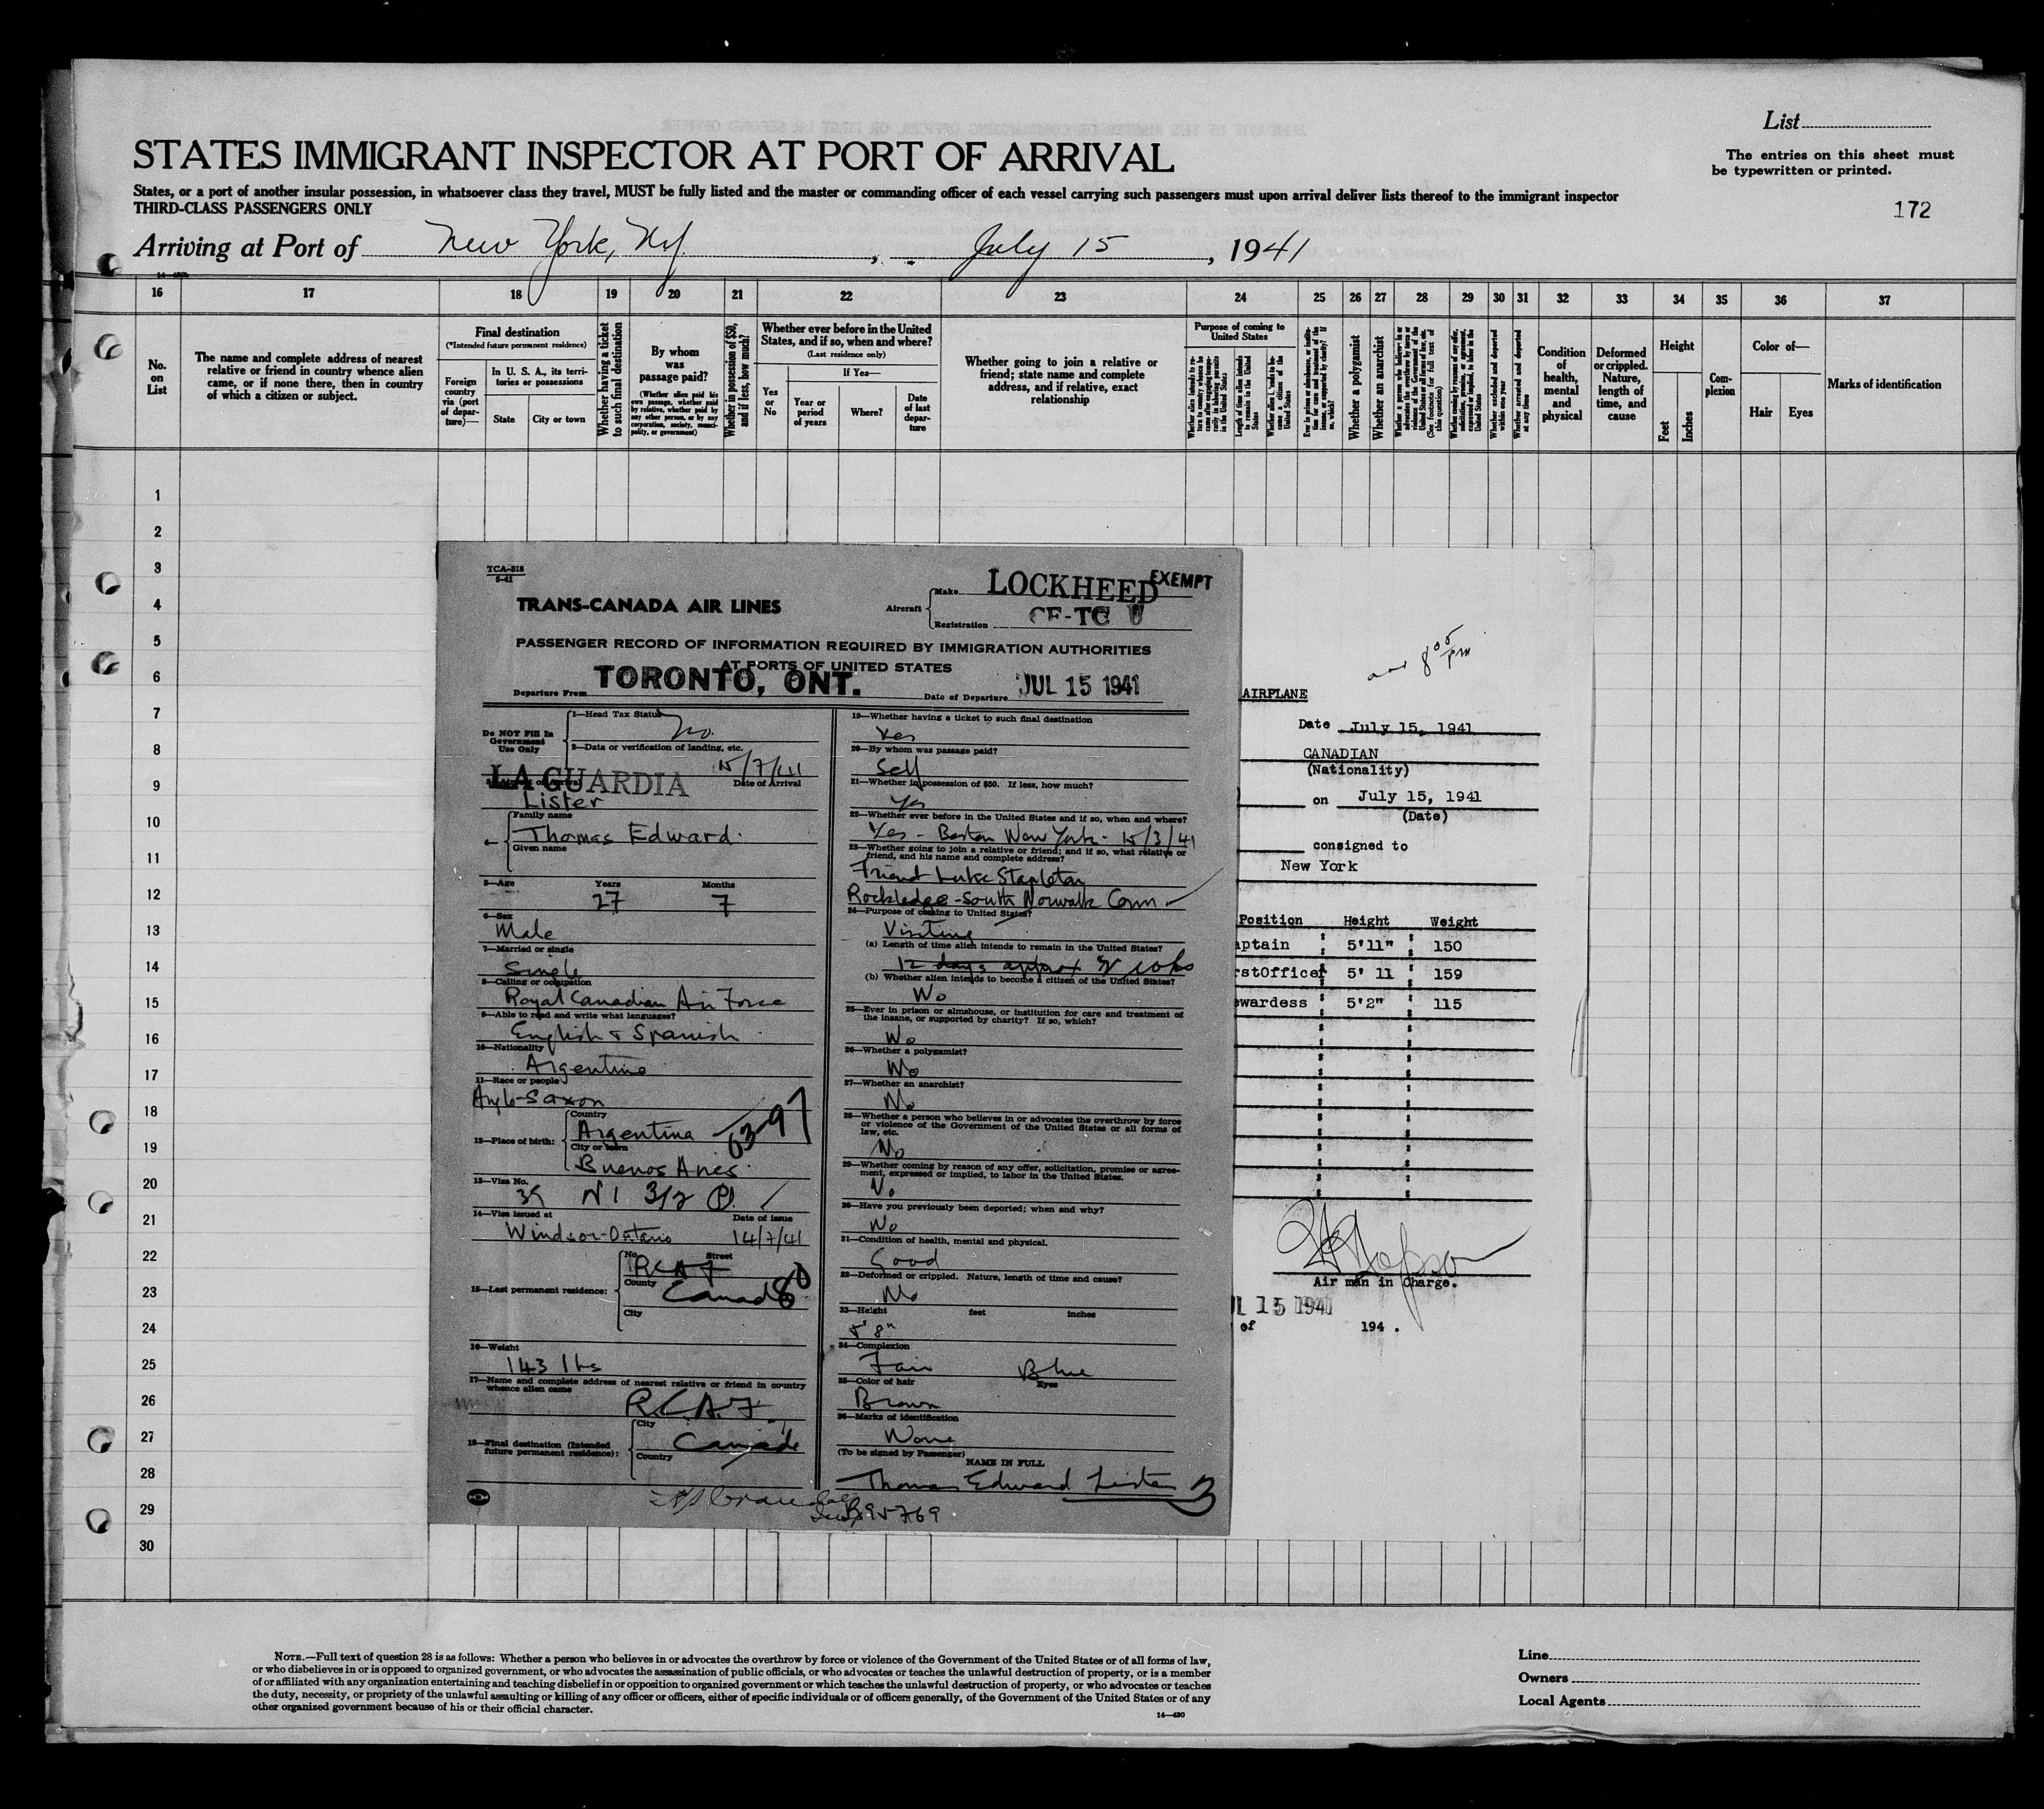 List
STATES IMMIGRANT INSPECTOR AT PORT OF ARRIVAL
The entries on this sheet must
be typewritten or printed.
States, or a port of another insular possession, in whatsoever class they travel, MUST be fully listed and the master or commanding officer of each vessel carrying such passengers must upon arrival deliver lists thereof to the immigrant inspector
THIRD-CLASS PASSENGERS ONLY
172
Arriving at Port of New York, NY. , July 15 , 1941
16 17 18 19 20 21 22 23 24 25 26 27 28 29 30 31 32 33 34 35 36 37
No. on List
The name and complete address of nearest relative or friend in country whence alien came, or if none there, then in country of which a citizen or subject.
Final destination
(*Intended future permanent residence)
Foreign country via (port of departure)—
In U. S. A., its territories or possessions
State
City or town
Whether having a ticket to such final destination
By whom was passage paid?
(Whether alien paid his own passage, whether paid by relative, whether paid by any other person, or by any corporation, society, municipality, or government)
Whether in possession of $50, and if less, how much?
Whether ever before in the United States, and if so, when and where?
(Last residence only)
Yes or No
If Yes—
Year or period of years
Where?
Date of last departure
Whether going to join a relative or friend; state name and complete address, and if relative, exact relationship
Purpose of coming to United States
Whether a polygamist
Whether an anarchist
Whether excluded and deported within one year
Whether arrested and deported at any time
Condition of health, mental and physical
Deformed or crippled. Nature, length of time, and cause
Height
Feet
Inches
Complexion
Color of—
Hair
Eyes
Marks of identification
1
2
3
4
5
6
7
8
9
10
11
12
13
14
15
16
17
18
19
20
21
22
23
24
25
26
27
28
29
30
TCA-818
5-41
TRANS-CANADA AIR LINES
Aircraft
Make LOCKHEED
EXEMPT
Registration CF-TC U
PASSENGER RECORD OF INFORMATION REQUIRED BY IMMIGRATION AUTHORITIES
AT PORTS OF UNITED STATES
Departure From TORONTO, ONT. Date of Departure JUL 15 1941
Do NOT Fill In Government Use Only
1—Head Tax Status No.
2—Data or verification of landing, etc.
LA GUARDIA 15/7/41
Date of Arrival
Lister
Family name
Thomas Edward.
Given name
5—Age Years Months
27 7
6—Sex
Male
7—Married or single
Single
8—Calling or occupation
Royal Canadian Air Force
9—Able to read and write what languages?
English & Spanish
10—Nationality
Argentine
11—Race or people
Anglo-Saxon
12—Place of birth:
Country
Argentina 63-97
City or town
Buenos Aires.
13—Visa No.
39 N1 3/2
14—Visa issued at Date of issue
Windsor-Ontario 14/7/41
15—Last permanent residence:
No. Street
RCAF
County
Canada
City
16—Weight
143 lbs
17—Name and complete address of nearest relative or friend in country whence alien came
R.C.A.F.
18—Final destination (Intended future permanent residence):
City
Canada
Country
19—Whether having a ticket to such final destination
Yes
20—By whom was passage paid?
Self
21—Whether in possession of $50. If less, how much?
Yes
22—Whether ever before in the United States and if so, when and where?
Yes - Boston New York - 15/3/41
23—Whether going to join a relative or friend; and if so, what relative or friend, and his name and complete address?
Friend Luke Stapleton
Rockledge - South Norwalk Conn
24—Purpose of coming to United States?
Visiting
(a) Length of time alien intends to remain in the United States?
12 days approx
(b) Whether alien intends to become a citizen of the United States?
No
25—Ever in prison or almshouse, or institution for care and treatment of the insane, or supported by charity? If so, which?
No
26—Whether a polygamist?
No
27—Whether an anarchist?
No
28—Whether a person who believes in or advocates the overthrow by force or violence of the Government of the United States or all forms of law, etc.
No
29—Whether coming by reason of any offer, solicitation, promise or agreement, expressed or implied, to labor in the United States.
No
30—Have you previously been deported; when and why?
No
31—Condition of health, mental and physical.
Good
32—Deformed or crippled. Nature, length of time and cause?
No
33—Height feet inches
5' 8"
34—Complexion
Fair Blue
35—Color of hair Eyes
Brown
36—Marks of identification
None
(To be signed by Passenger)
NAME IN FULL
Thomas Edward Lister 3
B95769
805 pm
AIRPLANE
Date July 15, 1941
CANADIAN
(Nationality)
on July 15, 1941
(Date)
consigned to
New York
Position Height Weight
aptain 5'11" 150
rstOfficer 5' 11 159
ewardess 5'2" 115
Air man in Charge.
UL 15 1941
of 194 .
NOTE.—Full text of question 28 is as follows: Whether a person who believes in or advocates the overthrow by force or violence of the Government of the United States or of all forms of law,
or who disbelieves in or is opposed to organized government, or who advocates the assassination of public officials, or who advocates or teaches the unlawful destruction of property, or is a member
of or affiliated with any organization entertaining and teaching disbelief in or opposition to organized government or which teaches the unlawful destruction of property, or who advocates or teaches
the duty, necessity, or propriety of the unlawful assaulting or killing of any officer or officers, either of specific individuals or of officers generally, of the Government of the United States or of any
other organized government because of his or their official character.
14—430
Line
Owners
Local Agents